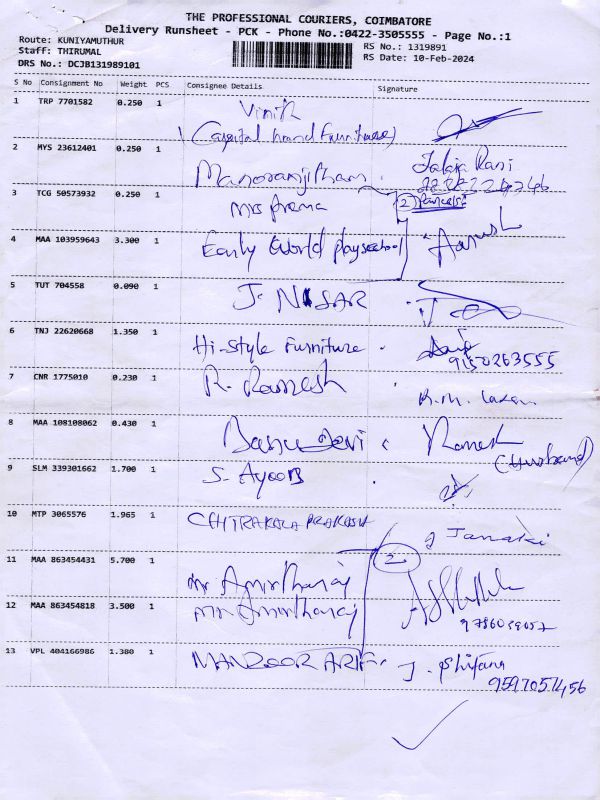 THE PROFESSIONAL COURIERS, COIMBATORE
Delivery Runsheet - PCK - Phone No.:0422-3505555 - Page No.:1
Route: KUNIYAMUTHUR
RS No.: 1319891
Staff: THIRUMAL
RS Date: 10-Feb-2024
DRS No.: DCJB131989101
S No Consignment No Weight PCS Consignee Details Signature
1 TRP 7701582 0.250 1 Vinith
(Capital hand Furniture)
2 MYS 23612401 0.250 1 Manoranjitham Jalaja Rani
3 TCG 50573932 0.250 1 Mrs Prema (2)
4 MAA 103959643 3.300 1 Early World Playschool
5 TUT 704558 0.090 1 J. NISAR
6 TNJ 22620668 1.350 1 Hi-style Furniture
9150263555
7 CNR 1775010 0.230 1 R. Ramesh
8 MAA 108108062 0.430 1 Banu Devi Ramesh
(Husband)
9 SLM 339301662 1.700 1 S. Ayoob
10 MTP 3065576 1.965 1 CHITRAKALA PRAKASH Janaki
11 MAA 863454431 5.700 1 Mr Amirtharaj 2
12 MAA 863454818 3.500 1 Mr Amirtharaj
13 VPL 404166986 1.380 1 MANZOOR ARIF J. Shifana
9597057456